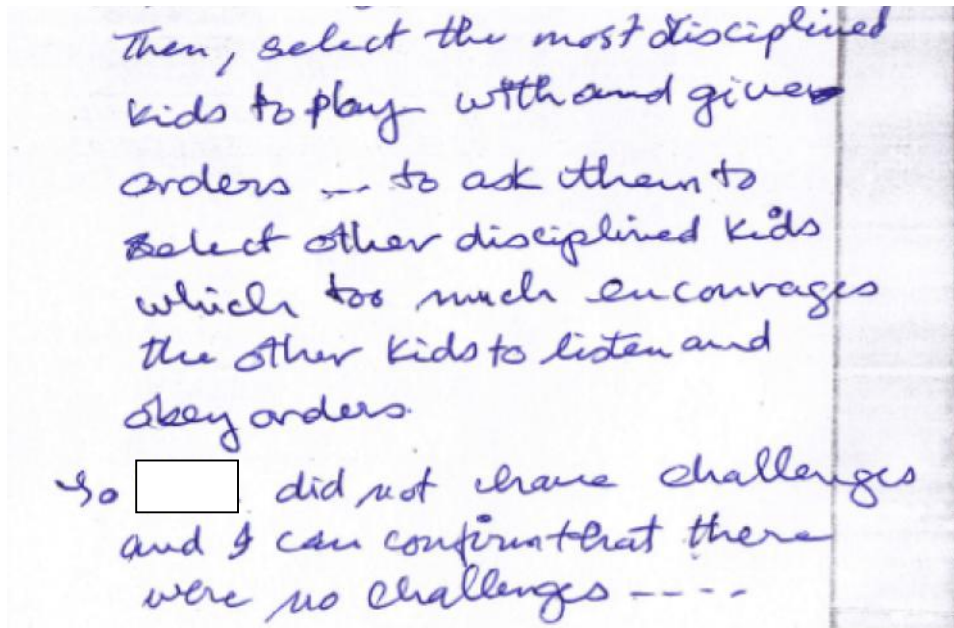 Then, select the most disciplined
kids to play with and gives
orders --- to ask them to
select other disciplined kids
which too much encourages
the other kids to listen and
obey orders.
So did not have challenges
and I can confirm that there
were no challenges ----